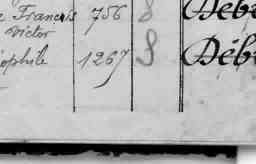 Francois 756 8 Deb
Victor
ophile 1267 8 Déb